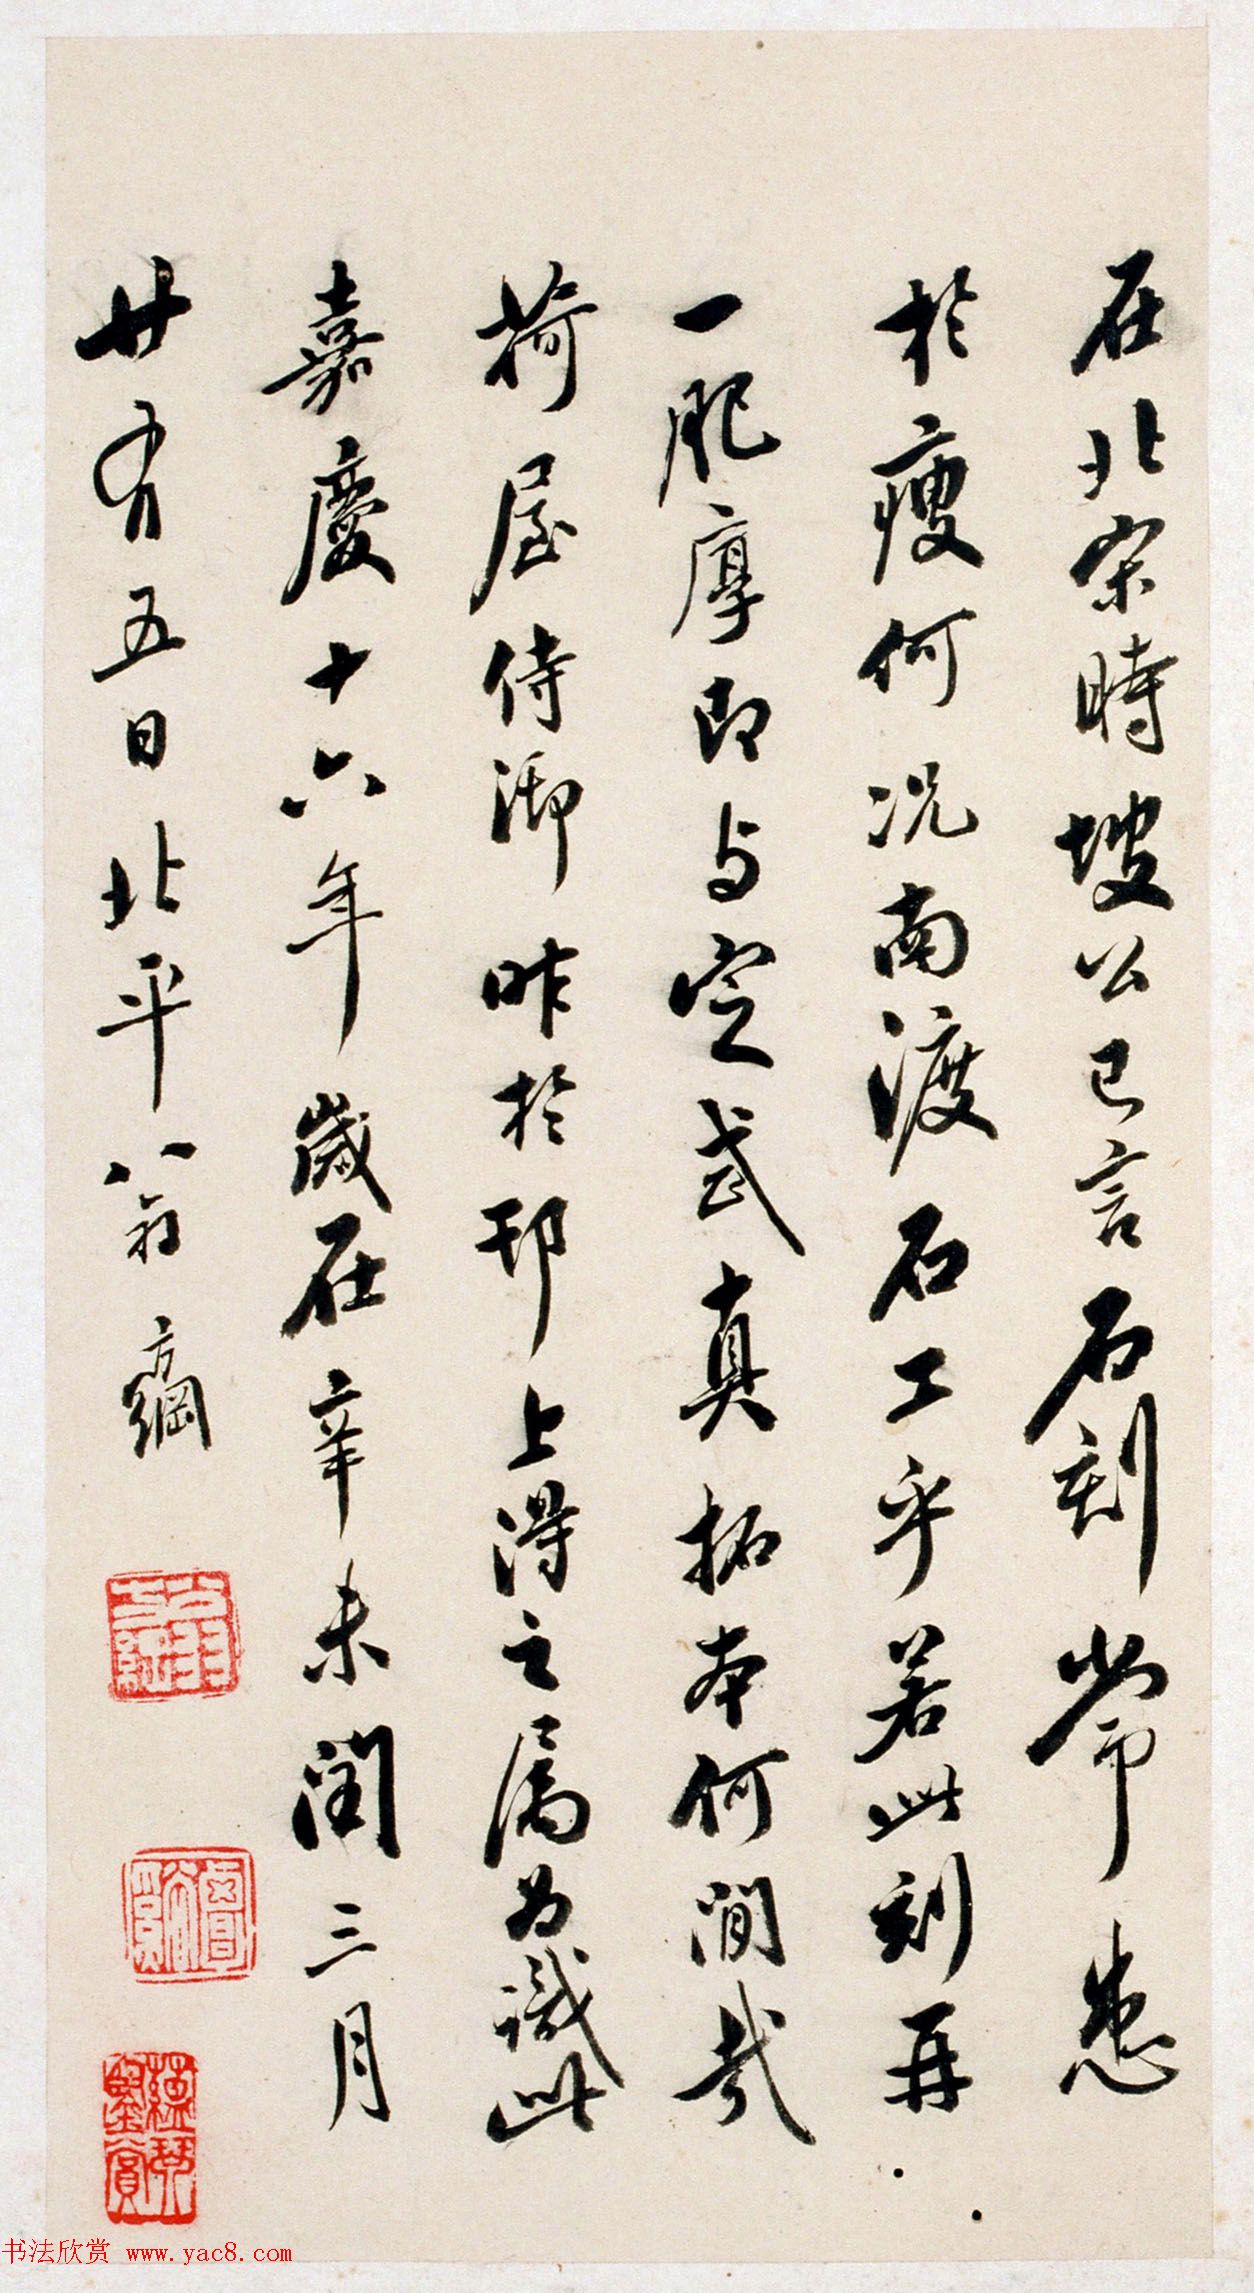 在北宋時坡公已言石刻常患
於瘦何况南渡石工乎若此刻再
一肥厚即与定武真拓本何間哉
荷屋侍御昨於邗上得之属为識此
嘉慶十六年歲在辛未閏三月
廿有五日北平翁方綱
翁方綱
書法欣赏 www.yac8.com